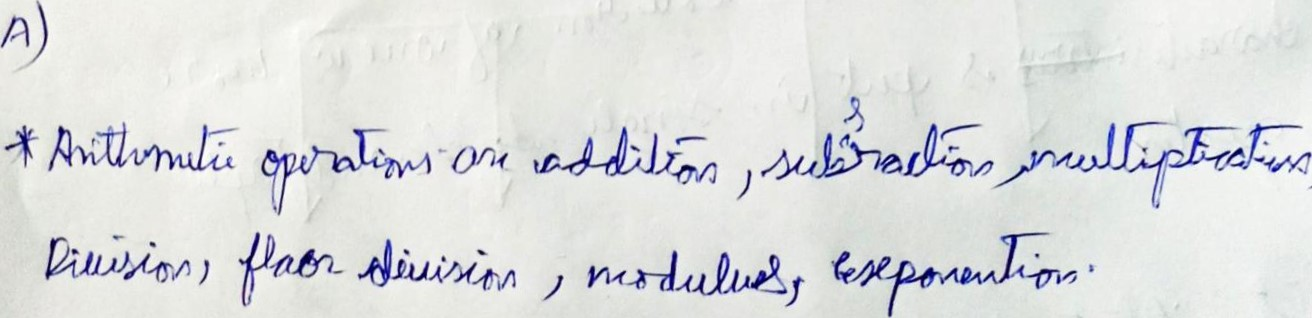 A)
* Arithmetic operations are addition, subsraction, multiplication
Division, floor division, modulues, exponention.